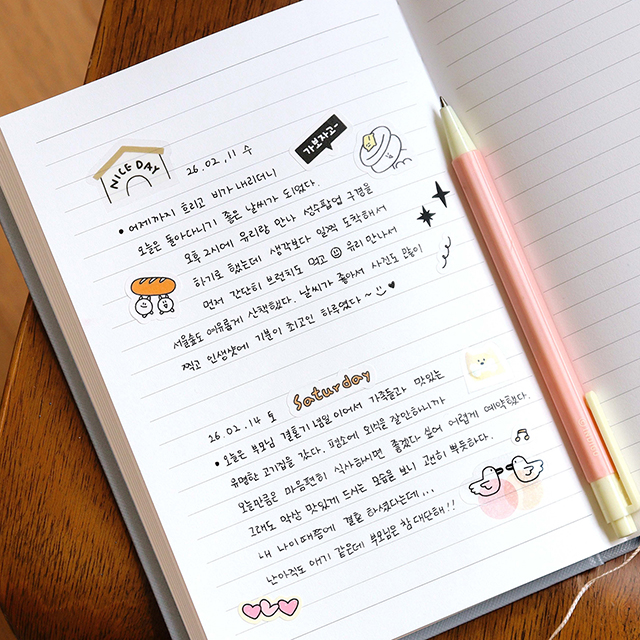 NICE DAY
26.02.11 수
가보자고~
• 어제까지 흐리고 비가 내리더니
오늘은 돌아다니기 좋은 날씨가 되었다.
오후 2시에 유리랑 만나 성수팝업 구경을
하기로 했는데 생각보다 일찍 도착해서
먼저 간단히 브런치도 먹고 유리 만나서
서울숲도 여유롭게 산책했다. 날씨가 좋아서 사진도 많이
찍고 인생샷에 기분이 최고인 하루였다~
26.02.14 토
Saturday
• 오늘은 부모님 결혼기념일 이어서 가족들과 맛있는
유명한 고기집을 갔다. 평소에 외식을 잘안하니까
오늘만큼은 마음편히 식사하시면 좋겠다 싶어 어렵게 예약했다.
그래도 막상 맛있게 드시는 모습을 보니 괜히 뿌듯하다.
내 나이때쯤에 결혼 하셨다는데...
난아직도 애기 같은데 부모님은 참 대단해!!